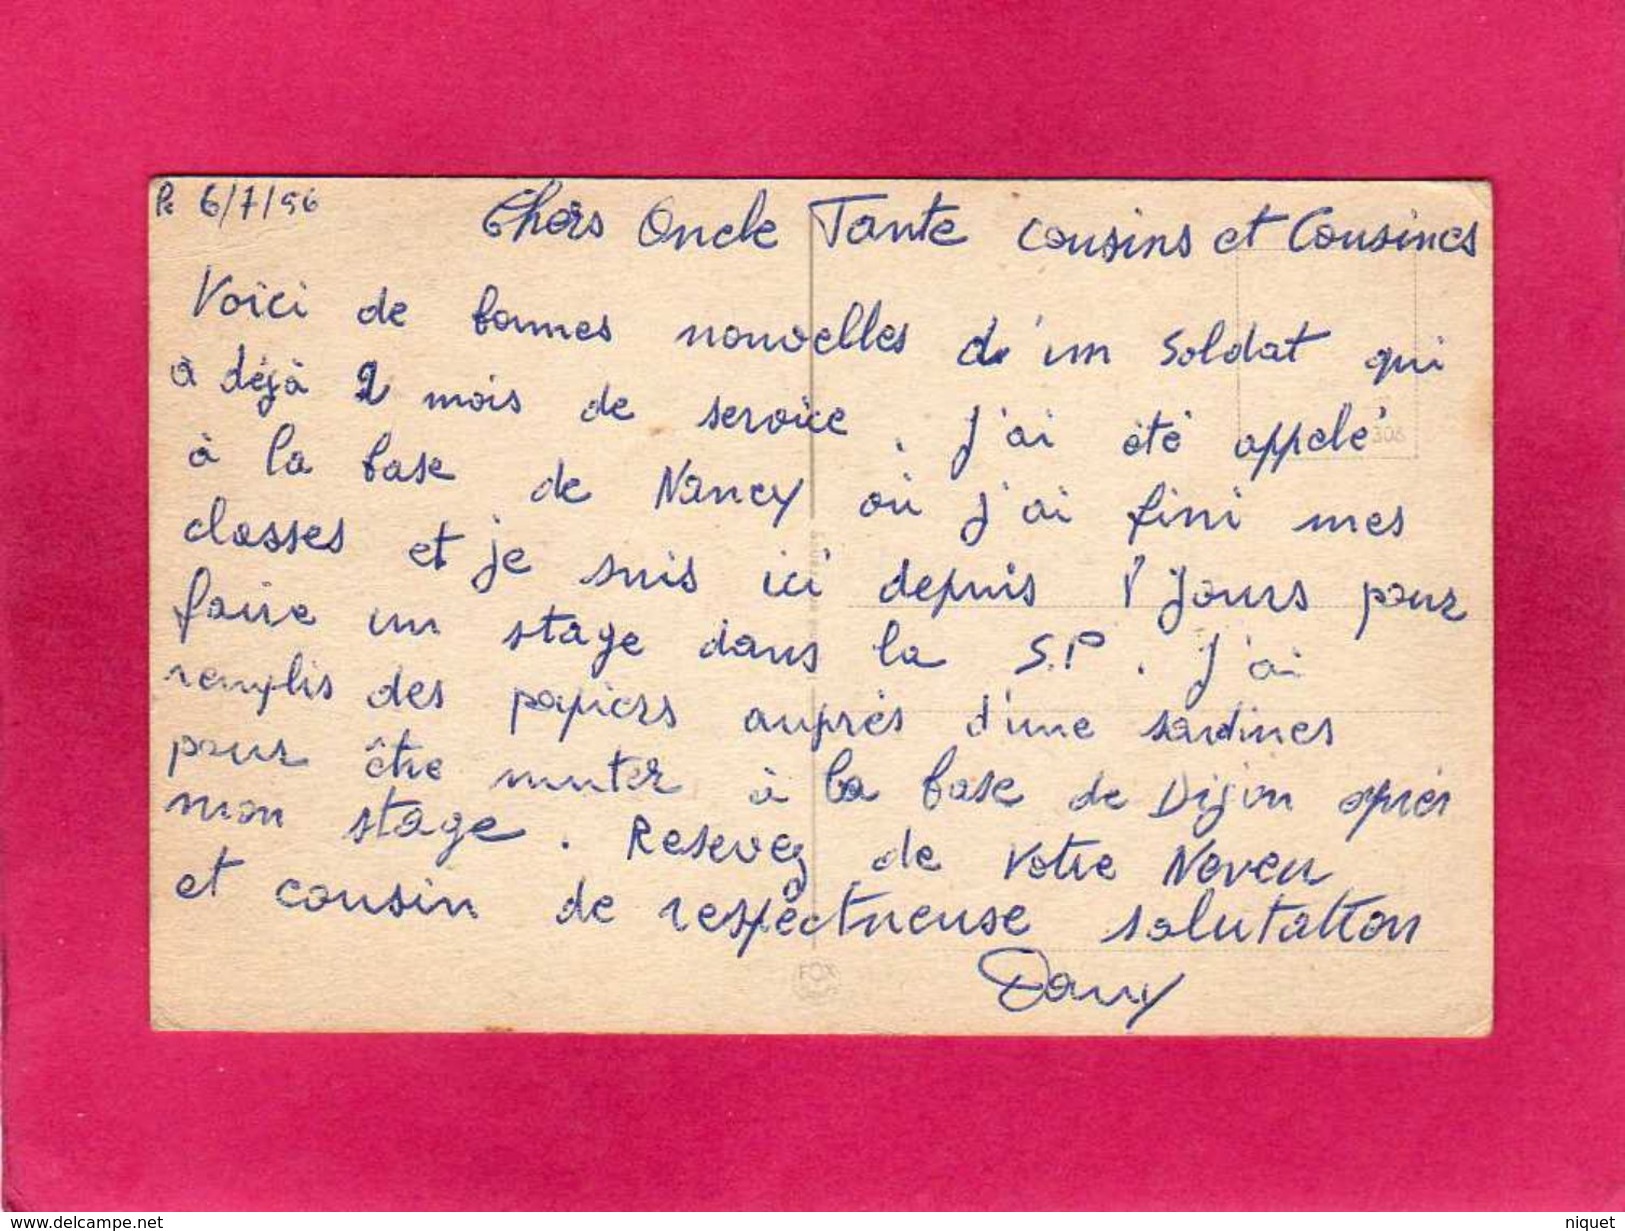 6/7/56
Chers Oncle Tante cousins et Cousines
Voici de bonnes nouvelles d'un soldat qui
à déjà 2 mois de service. J'ai été appelé
306
à la base de Nancy où j'ai fini mes
classes et je suis ici depuis jours pour
faire un stage dans la S.P. J'ai
remplis des papiers auprès d'une sardines
pour être muter à la base de Dijon après
mon stage. Resevez de votre Neveu
et cousin de respectueuse salutation
FOX
Dany
www.delcampe.net
niquet